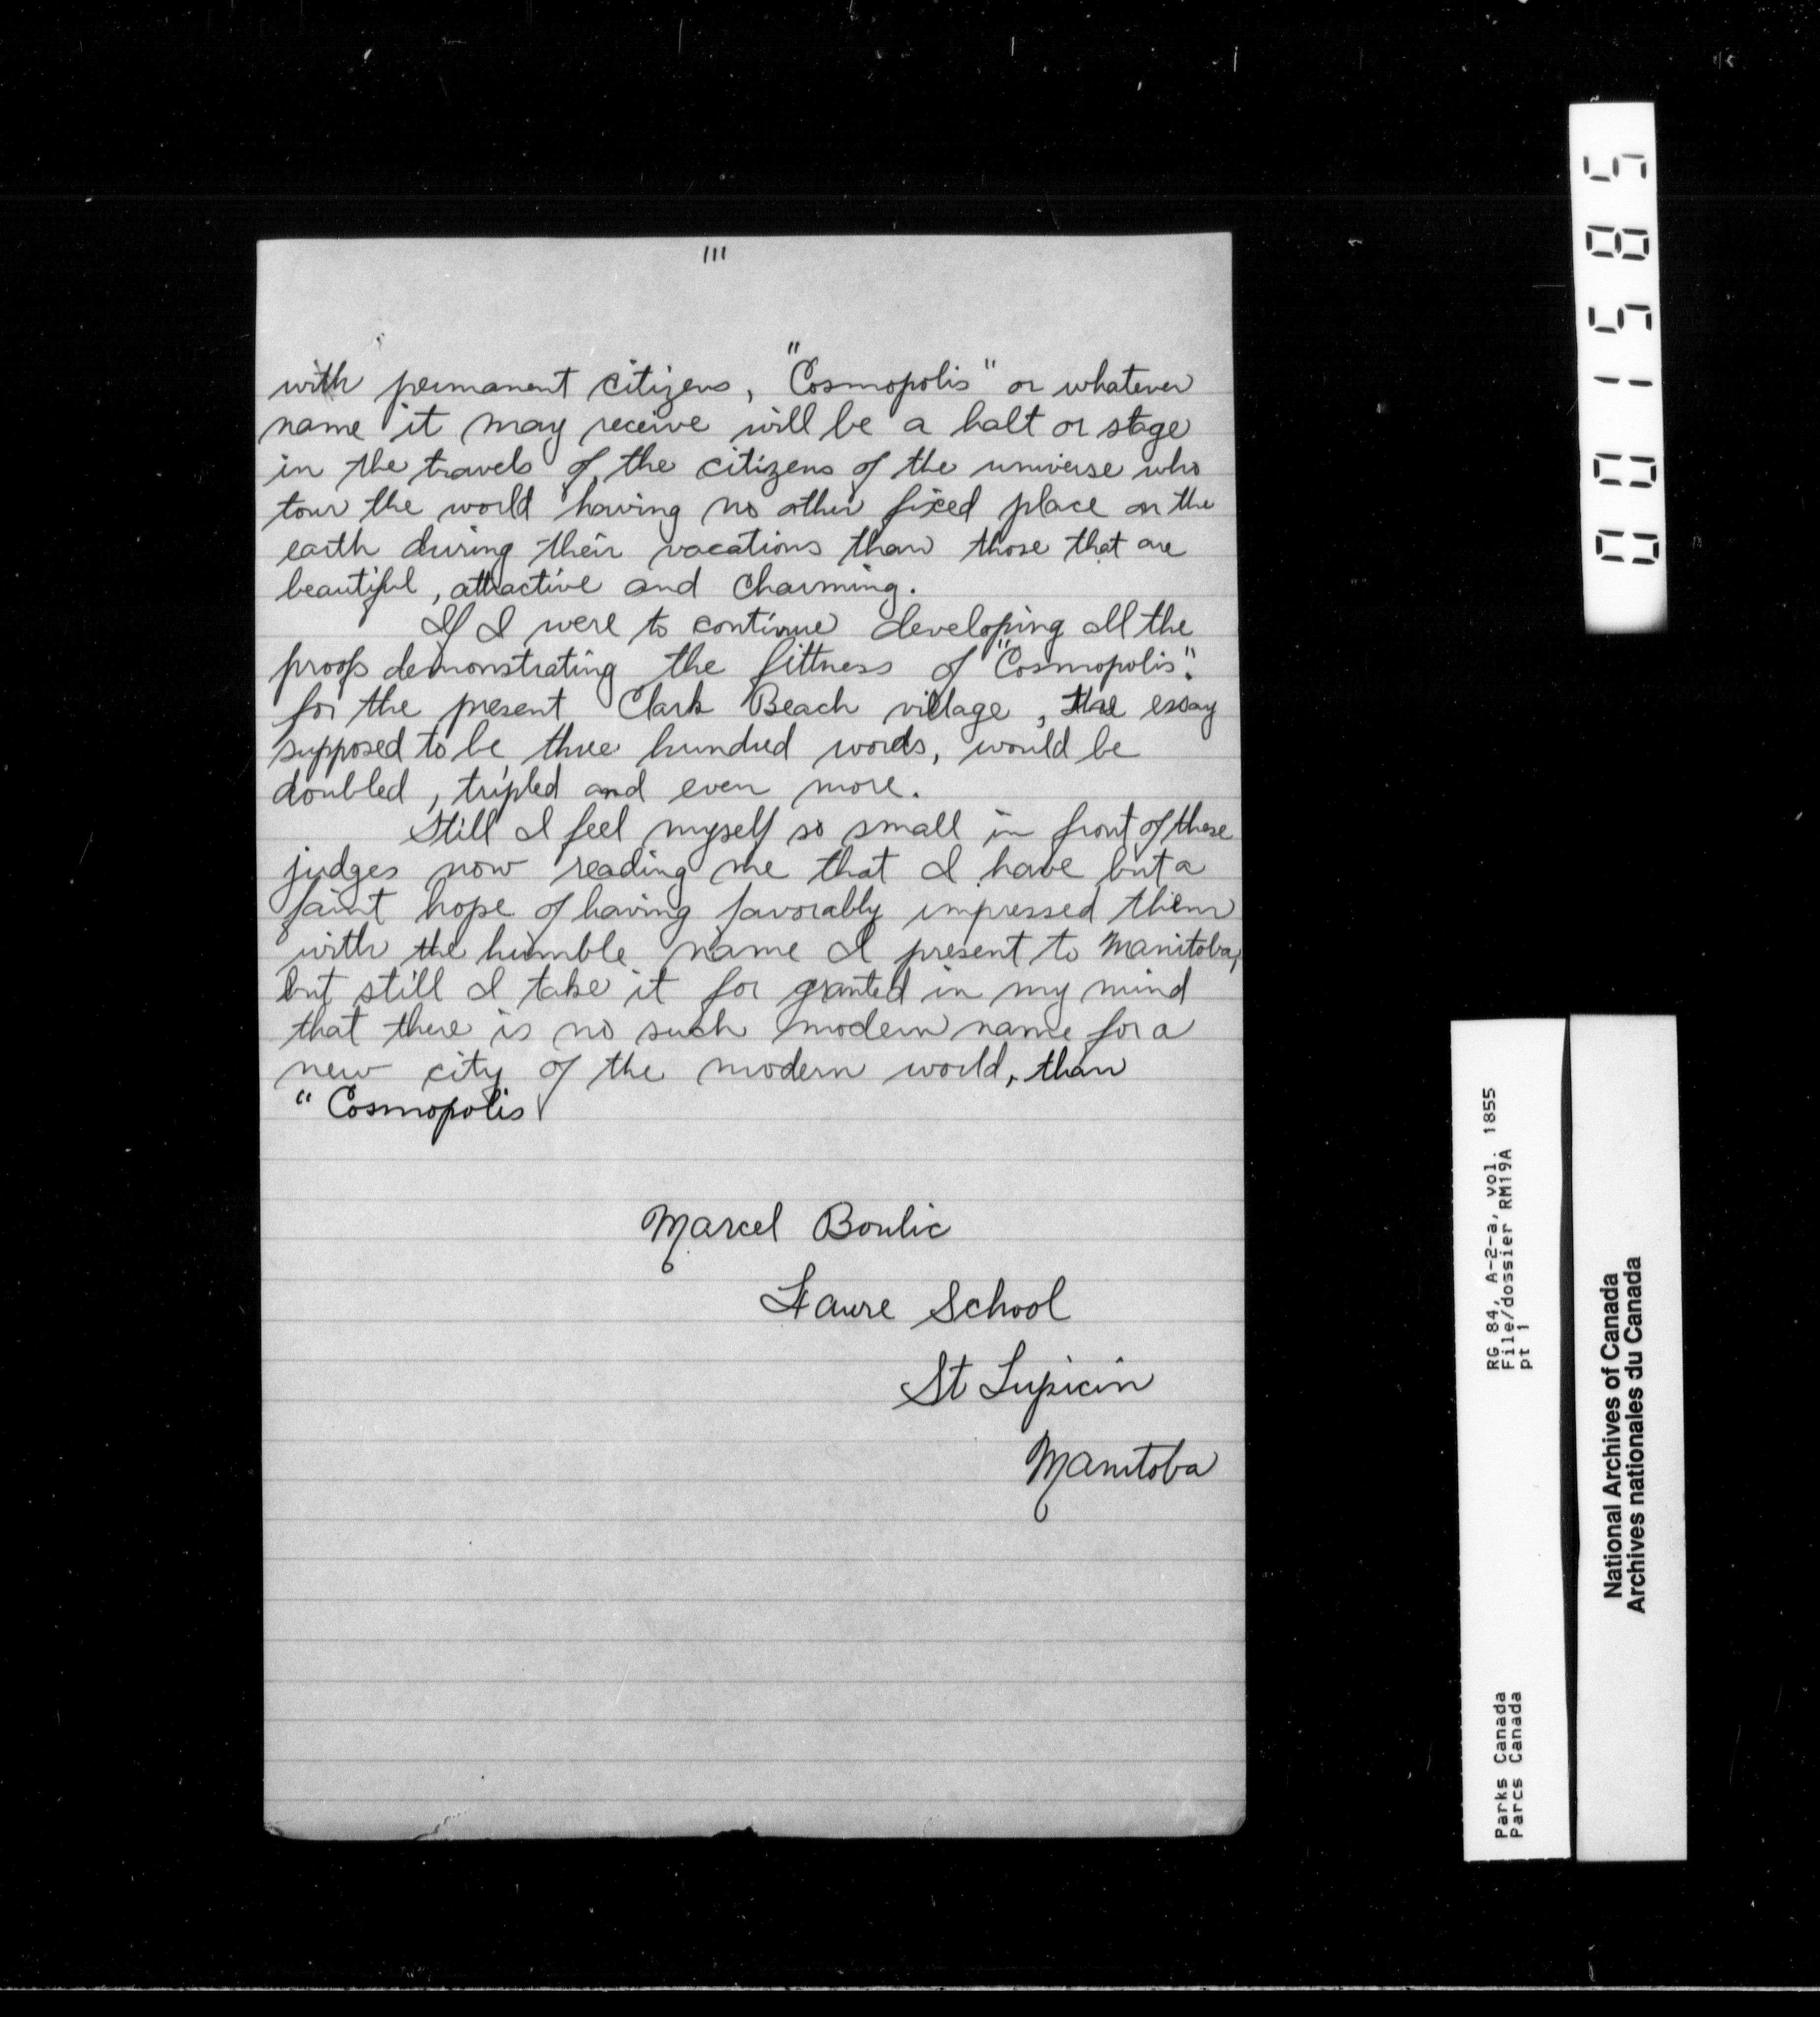 III
with permanent citizens, "Cosmopolis" or whatever
name it may receive will be a halt or stage
in the travels of the citizens of the universe who
tour the world having no other fixed place on the
earth during their vacations than those that are
beautiful, attractive and charming.
If I were to continue developing all the
proofs demonstrating the fittness of "Cosmopolis".
for the present Clark Beach village, the essay
supposed to be three hundred words, would be
doubled, tripled and even more.
Still I feel myself so small in front of these
judges now reading me that I have but a
faint hope of having favorably impressed them
with the humble name I present to Manitoba,
but still I take it for granted in my mind
that there is no such modern name for a
new city of the modern world, than
"Cosmopolis
Marcel Boulic
Faure School
St Lupicin
Manitoba
001585
RG 84, A-2-a, vol. 1855
File/dossier RM19A
pt 1
Parks Canada
Parcs Canada
National Archives of Canada
Archives nationales du Canada